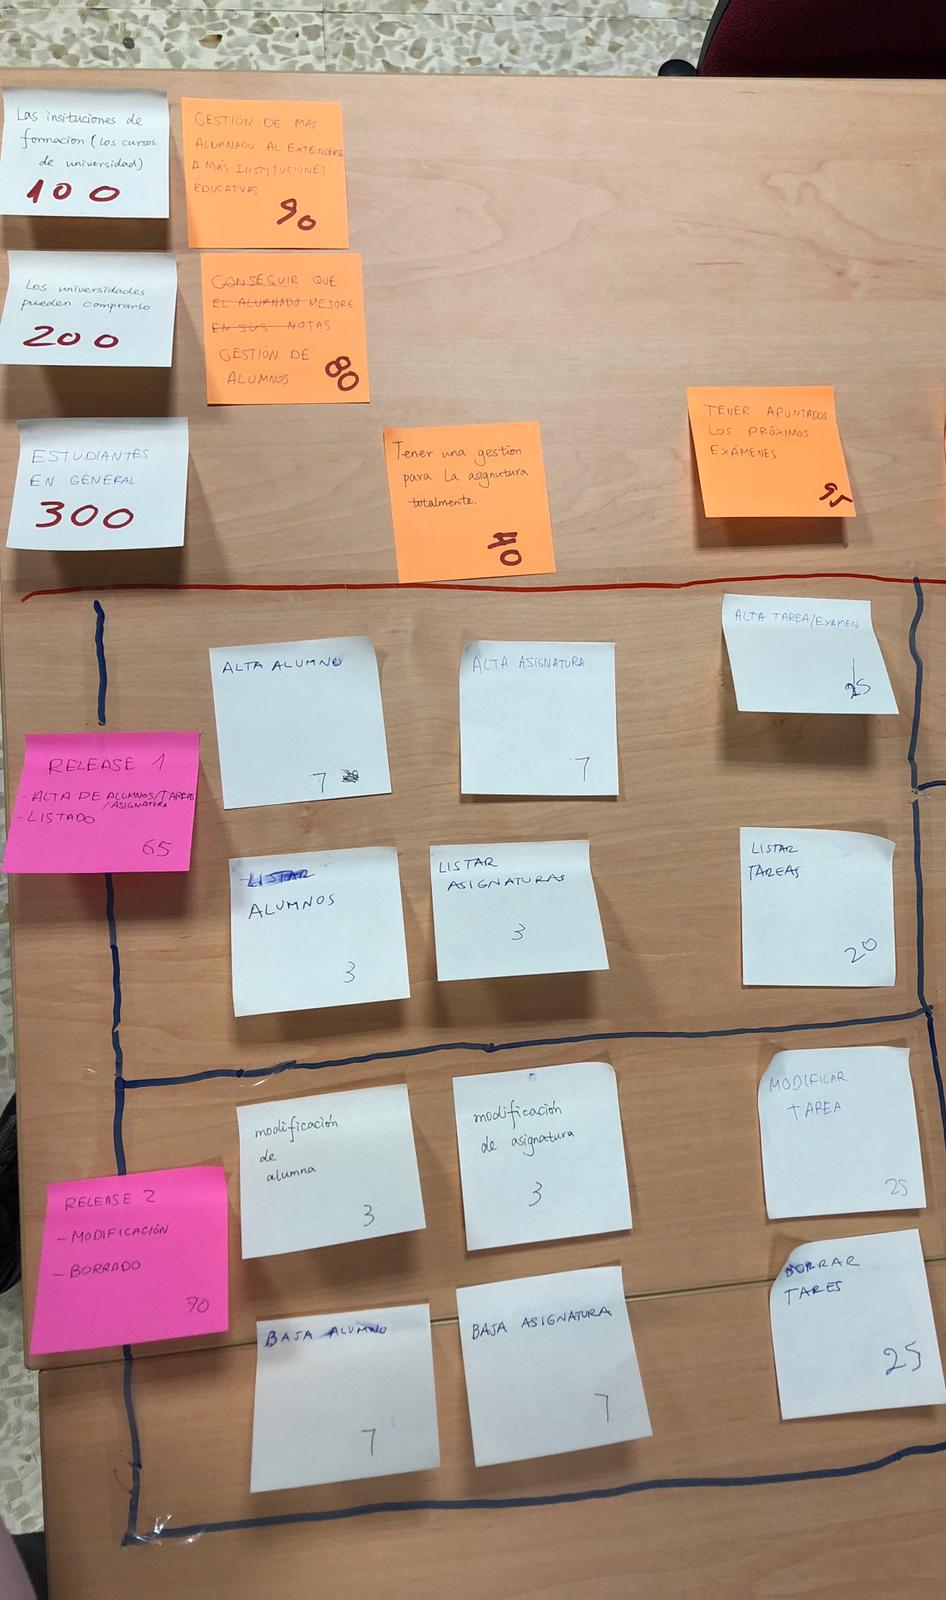 Las insituciones de
formacion (los cursos
de universidad)
100
GESTIÓN DE MÁS
ALUMNADO AL EXTENDERSE
A MÁS INSTITUCIONES
EDUCATIVAS
90
Los universidades
pueden comprarlo
200
CONSEGUIR QUE
EL ALUMNADO MEJORE
EN SUS NOTAS
GESTIÓN DE
ALUMNOS
80
ESTUDIANTES
EN GENERAL
300
Tener una gestion
para la asignatura
totalmente.
40
TENER APUNTADOS
LOS PRÓXIMOS
EXÁMENES
95
ALTA ALUMNO
7
ALTA ASIGNATURA
7
ALTA TAREA/EXAMEN
25
RELEASE 1
- ALTA DE ALUMNOS/TAREAS
/ASIGNATURA
- LISTADO
65
LISTAR
ALUMNOS
3
LISTAR
ASIGNATURAS
3
LISTAR
TAREAS
20
RELEASE 2
- MODIFICACIÓN
- BORRADO
70
modificación
de
alumna
3
modificación
de asignatura
3
MODIFICAR
TAREA
25
BAJA ALUMNO
7
BAJA ASIGNATURA
7
BORRAR
TARES
25